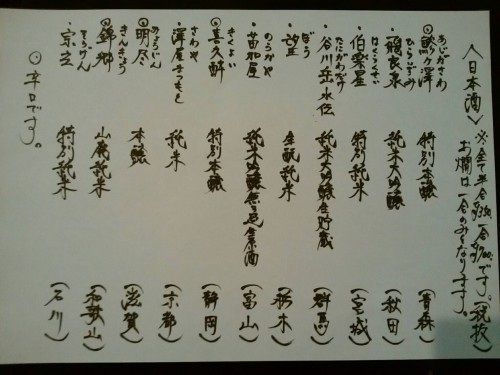 〈日本酒〉 ※全て半合350 一合700です。(税抜)
お燗は一合のみとなります。
あじがさわ
◎鰺ヶ澤 特別本醸 (青森)
ひらいずみ
・飛良泉 純米大吟醸 (秋田)
はくらくせい
・伯楽星 特別純米 (宮城)
たにがわだけ
・谷川岳 純米大吟醸生貯蔵 (群馬)
ぼう
・望 生酛純米 (栃木)
のうかや
・苗加屋 純米大吟醸無ろ過生原酒 (富山)
きくよい
◎喜久酔 特別本醸 (静岡)
さわや
・澤屋まつもと 純米 (京都)
みょうじん
◎明尽 本醸 (滋賀)
きんきょう
◎錦郷 山廃純米 (和歌山)
そうげん
・宗玄 特別純米 (石川)
◎辛口です。